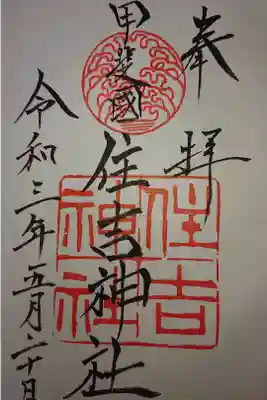 奉拝
甲斐國
住吉神社
住吉神社
令和三年五月二十日